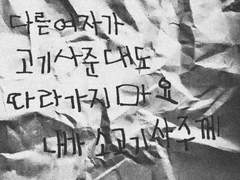 다른여자가
고기사준대도
따라가지마요
내가 소고기사주께